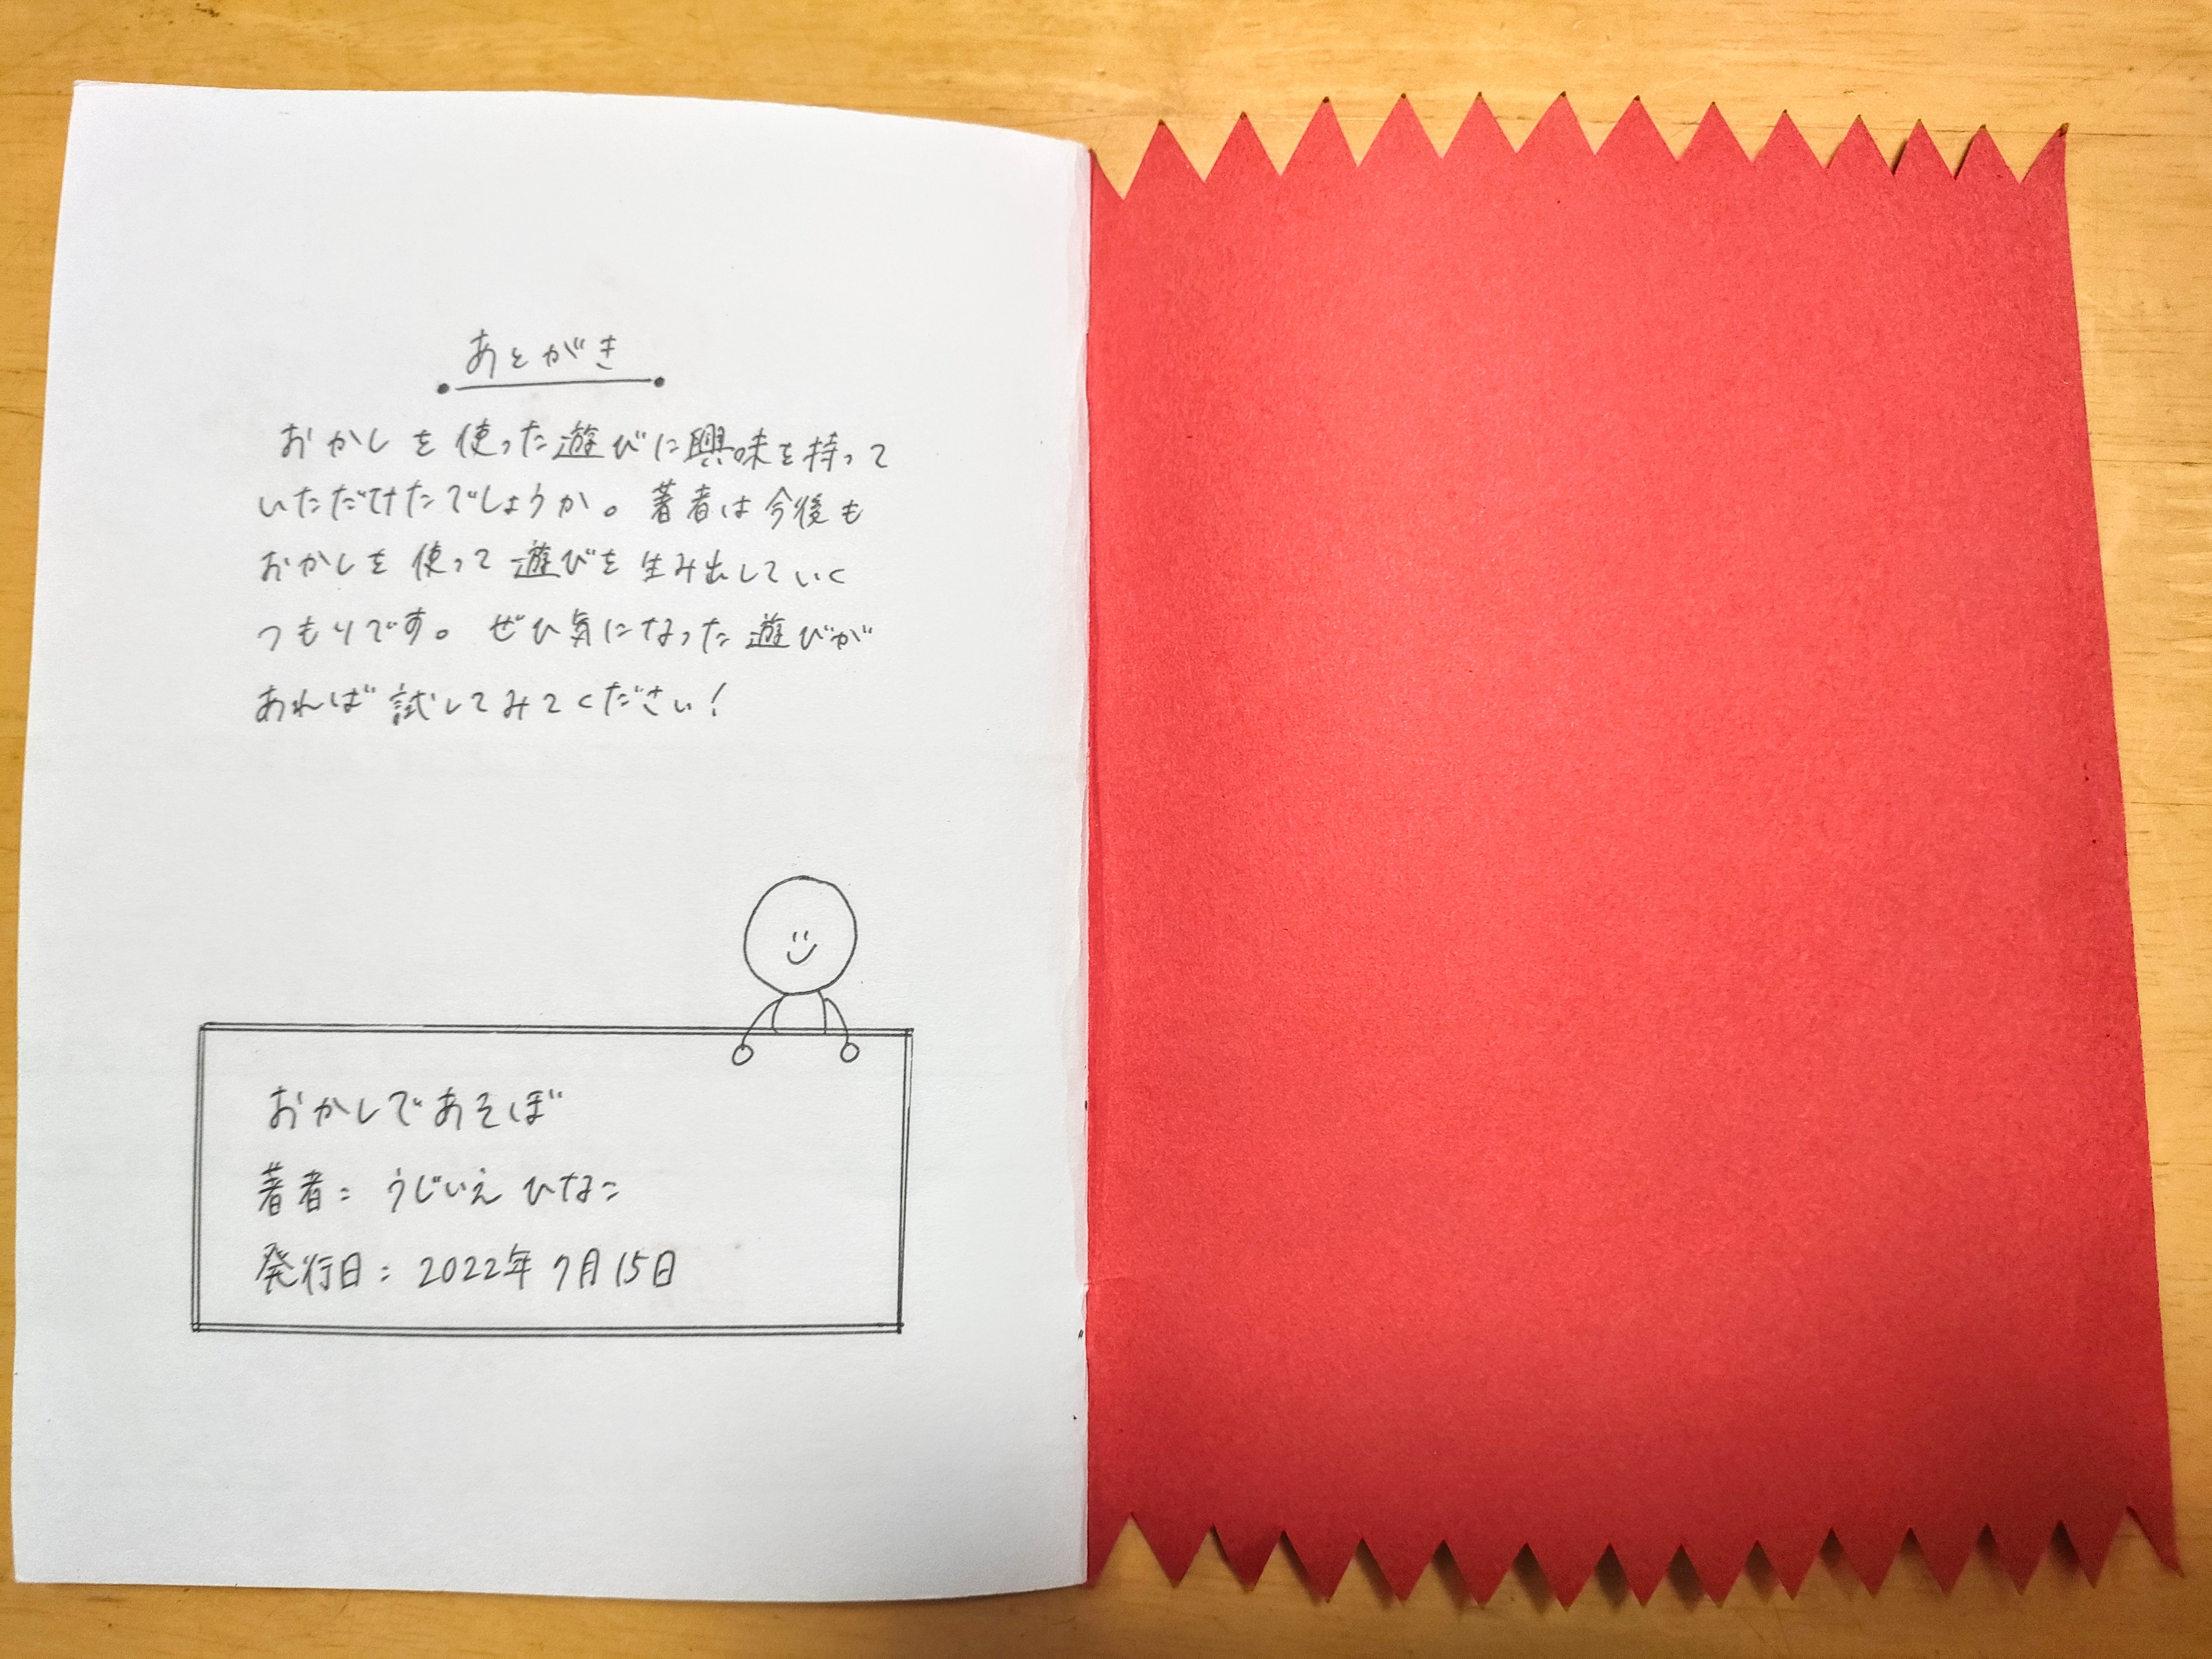 あとがき
おかしを使った遊びに興味を持って
いただけたでしょうか。著者は今後も
おかしを使って遊びを生み出していく
つもりです。ぜひ気になった遊びが
あれば試してみてください!
おかしであそぼ
著者:うじいえ ひなこ
発行日:2022年7月15日